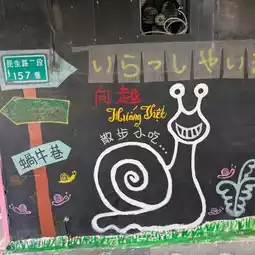 民生路二段
157巷
いらっしゃいま
向越
Hương Việt
散步小吃...
蝸牛巷